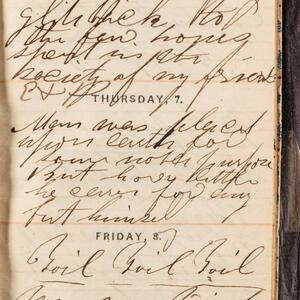 the few hours
spent in the
society of my friend
THURSDAY, 7.
Man was placed
upon earth for
some noble purpose
But how little
he cares for any
but himself
FRIDAY, 8.
Toil Toil Toil